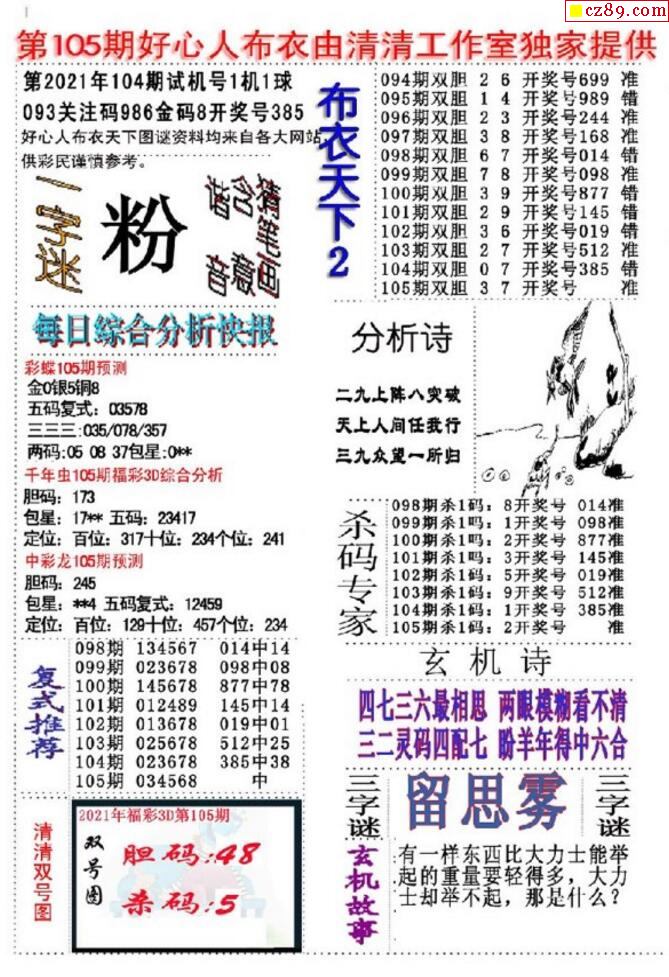 cz89.com
第105期好心人布衣由清清工作室独家提供
第2021年104期试机号1机1球
093关注码986金码8开奖号385
好心人布衣天下图谜资料均来自各大网站,
供彩民谨慎参考。
一字迷
粉
猜笔画
含意
谐音
布衣天下2
094期双胆 2 6 开奖号699 准
095期双胆 1 4 开奖号989 错
096期双胆 2 3 开奖号244 准
097期双胆 3 8 开奖号168 准
098期双胆 6 7 开奖号014 错
099期双胆 7 8 开奖号098 准
100期双胆 3 9 开奖号877 错
101期双胆 2 9 开奖号145 错
102期双胆 3 6 开奖号019 错
103期双胆 2 7 开奖号512 准
104期双胆 0 7 开奖号385 错
105期双胆 3 7 开奖号 准
每日综合分析快报
彩蝶105期预测
金0银5铜8
五码复式：03578
三三三:035/078/357
两码:05 08 37包星:0**
千年虫105期福彩3D综合分析
胆码：173
包星：17** 五码：23417
定位：百位：317十位：234个位：241
中彩龙105期预测
胆码：245
包星：**4 五码复式：12459
定位：百位：129十位：457个位：234
分析诗
二九上阵八突破
天上人间任我行
三九众望一所归
杀码专家
098期杀1码：8开奖号 014准
099期杀1吗：1开奖号 098准
100期杀1吗：2开奖号 877准
101期杀1吗：3开奖号 145准
102期杀1码：5开奖号 019准
103期杀1码：9开奖号 512准
104期杀1码：1开奖号 385准
105期杀1码：2开奖号 准
复式推荐
098期 134567 014中14
099期 023678 098中08
100期 145678 877中78
101期 012489 145中14
102期 013678 019中01
103期 025678 512中25
104期 023678 385中38
105期 034568 中
玄机诗
四七三六最相思 两眼模糊看不清
三二灵码四配七 盼羊年得中六合
三字谜
留思雾
三字谜
清清双号图
2021年福彩3D第105期
双号图
胆码:48
杀码:5
玄机故事
有一样东西比大力士能举
起的重量要轻得多，大力
士却举不起，那是什么？